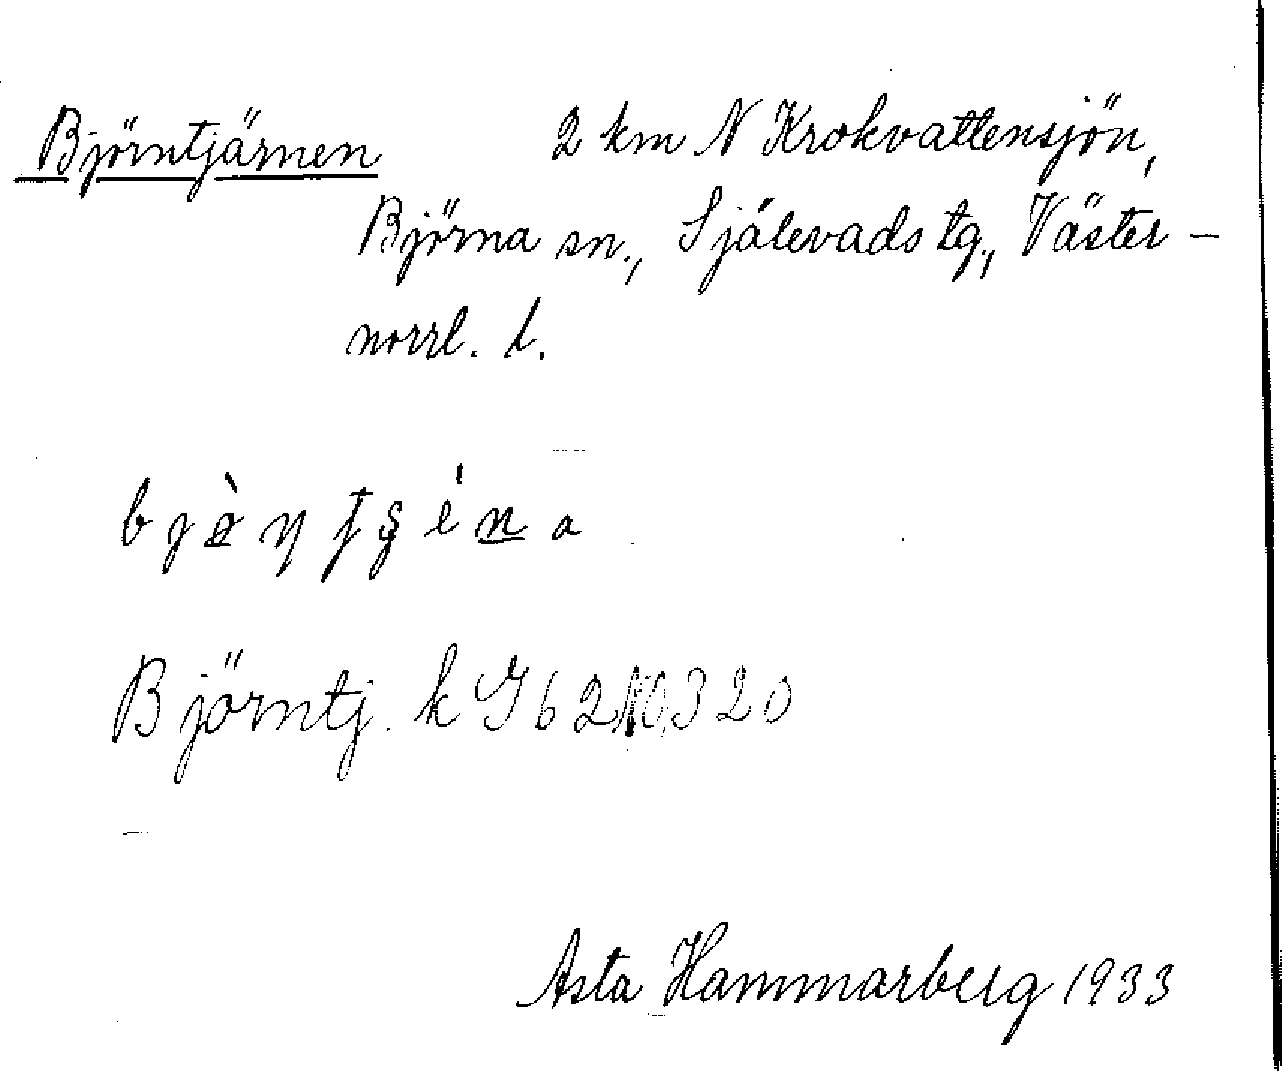 Björntjärnen 2 km N Krokvattensjön,
Björna sn., Själevads tg., Väster-
norrl. l.
Björntj. k G 62 NO, 320
Asta Hammarberg 1933